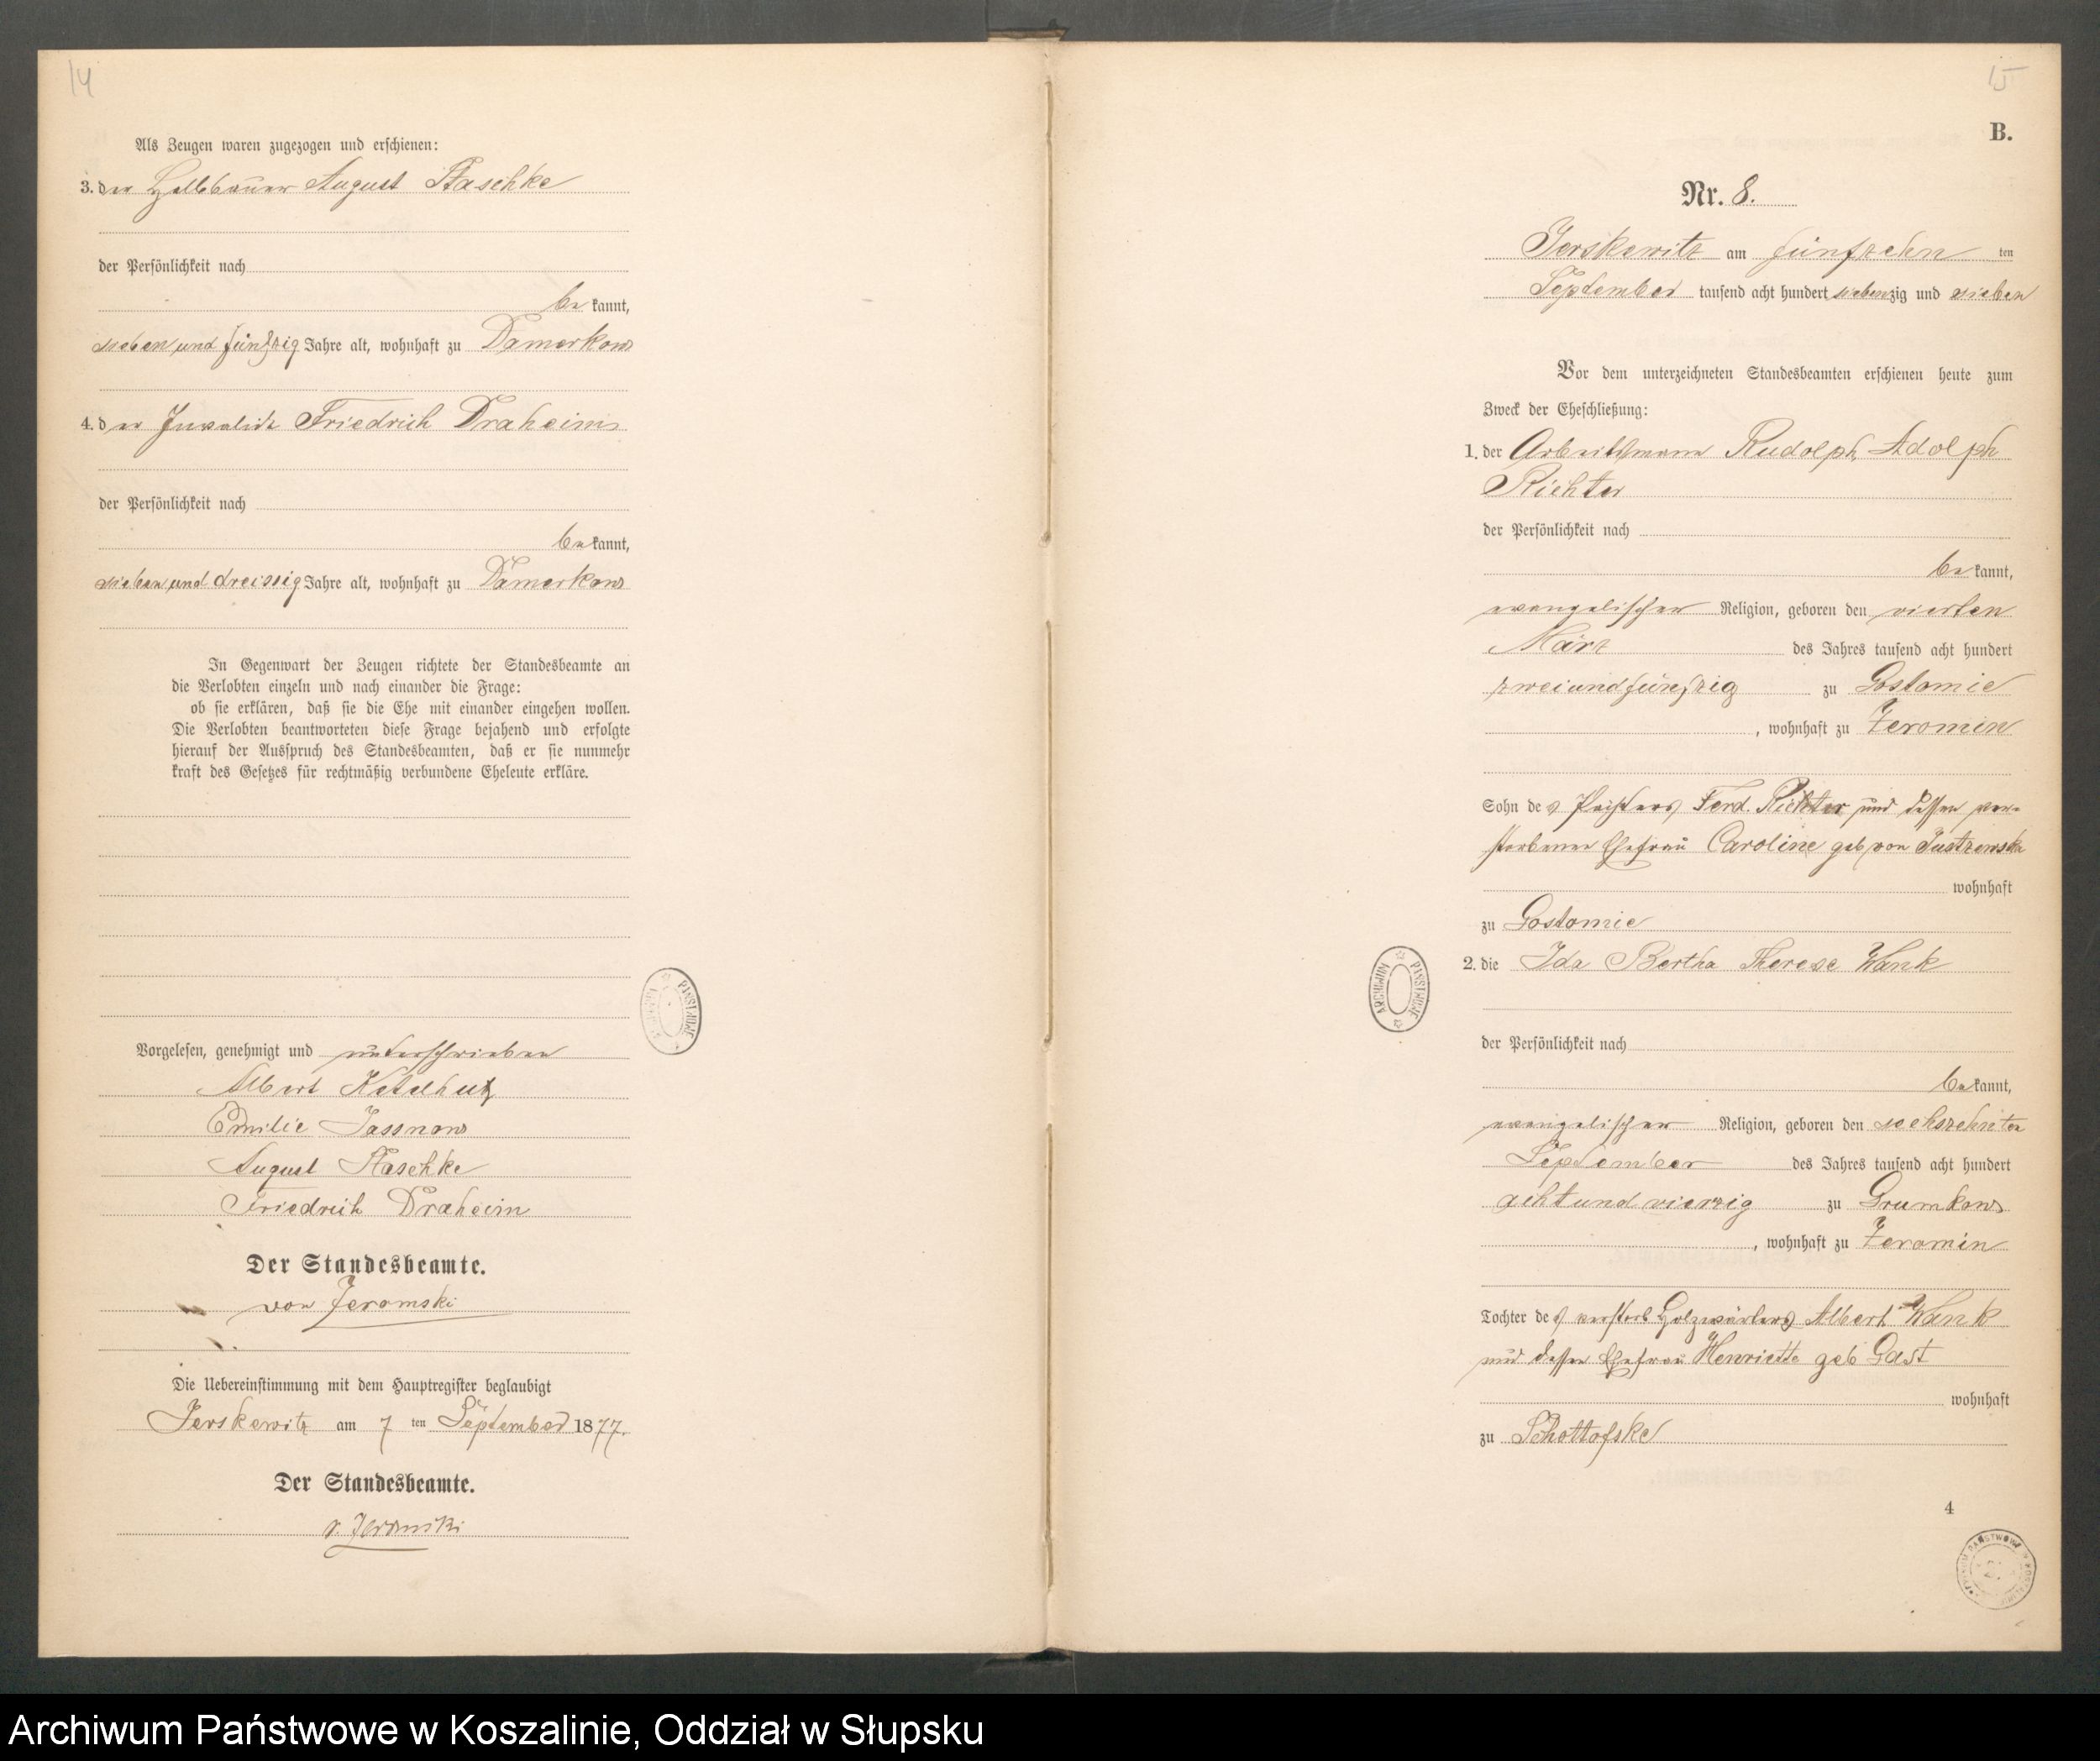 14
Als Zeugen waren zugezogen und erschienen:
3. der Halbbauer August Staschke
der Persönlichkeit nach
bekannt,
sieben und fünfzig Jahre alt, wohnhaft zu Damerkow
4. der Invalide Friedrich Draheim
der Persönlichkeit nach
bekannt,
sieben und dreissig Jahre alt, wohnhaft zu Damerkow
In Gegenwart der Zeugen richtete der Standesbeamte an
die Verlobten einzeln und nach einander die Frage:
ob sie erklären, daß sie die Ehe mit einander eingehen wollen.
Die Verlobten beantworteten diese Frage bejahend und erfolgte
hierauf der Ausspruch des Standesbeamten, daß er sie nunmehr
kraft des Gesetzes für rechtmäßig verbundene Eheleute erkläre.
Vorgelesen, genehmigt und unterschrieben
Albert Ketelhut
Emilie Jassnow
August Staschke
Friedrich Draheim
Der Standesbeamte.
von Jeromski
Die Uebereinstimmung mit dem Hauptregister beglaubigt
Jerskewitz am 7 ten September 1877.
Der Standesbeamte.
v. Jeromski
15
B.
Nr. 8.
Jerskewitz am fünfzehn ten
September tausend acht hundert siebenzig und sieben
Vor dem unterzeichneten Standesbeamten erschienen heute zum
Zweck der Eheschließung:
1. der Arbeitsmann Rudolph Adolph
Richter
der Persönlichkeit nach
bekannt,
evangelischer Religion, geboren den vierten
März des Jahres tausend acht hundert
zwei und fünfzig zu Gostomie
, wohnhaft zu Zeromin
Sohn des Ferd. Richter und dessen ver-
storbenen Ehefrau Caroline geb von
wohnhaft
zu Gostomie
2. die Ida Bertha Therese Wank
der Persönlichkeit nach
bekannt,
evangelischer Religion, geboren den sechszehnten
September des Jahres tausend acht hundert
acht und vierzig zu Grumkow
, wohnhaft zu Zeromin
Tochter des verstorb Holzwärters Albert Wank
und dessen Ehefrau Henriette geb Gast
wohnhaft
zu Schottofske
4
ARCHIWUM PAŃSTWOWE
Archiwum Państwowe w Koszalinie, Oddział w Słupsku